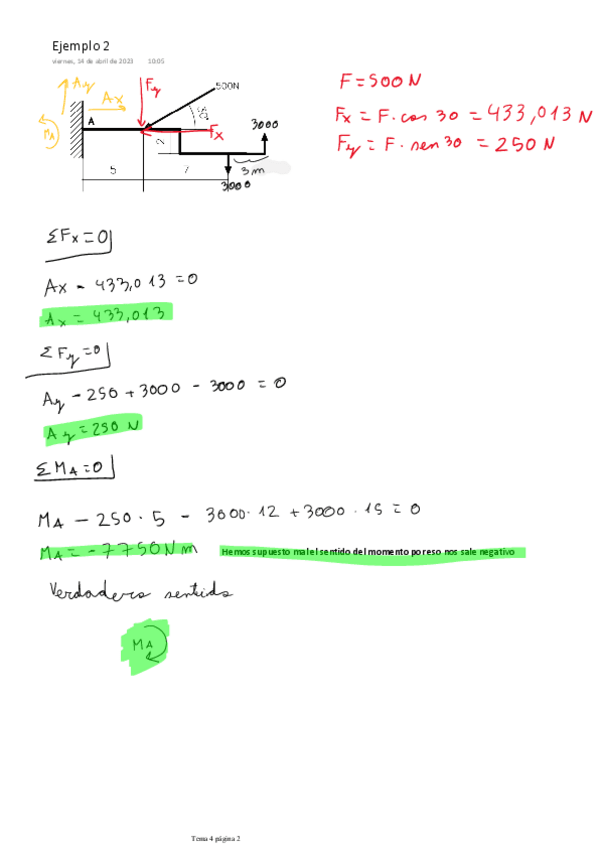 Ejemplo 2
viernes, 14 de abril de 2023 10:05
Ay
Ax
MA
A
Fy
500N
30°
Fx
3000
2
5
7
3 m
3000
F = 500 N
Fx = F · cos 30 = 433,013 N
Fy = F · sen 30 = 250 N
ΣFx = 0
Ax - 433,013 = 0
Ax = 433,013
ΣFy = 0
Ay - 250 + 3000 - 3000 = 0
Ay = 250 N
ΣMA = 0
MA - 250 · 5 - 3000 · 12 + 3000 · 15 = 0
MA = - 7750 N m
Hemos supuesto mal el sentido del momento por eso nos sale negativo
Verdadero sentido
MA
Tema 4 página 2